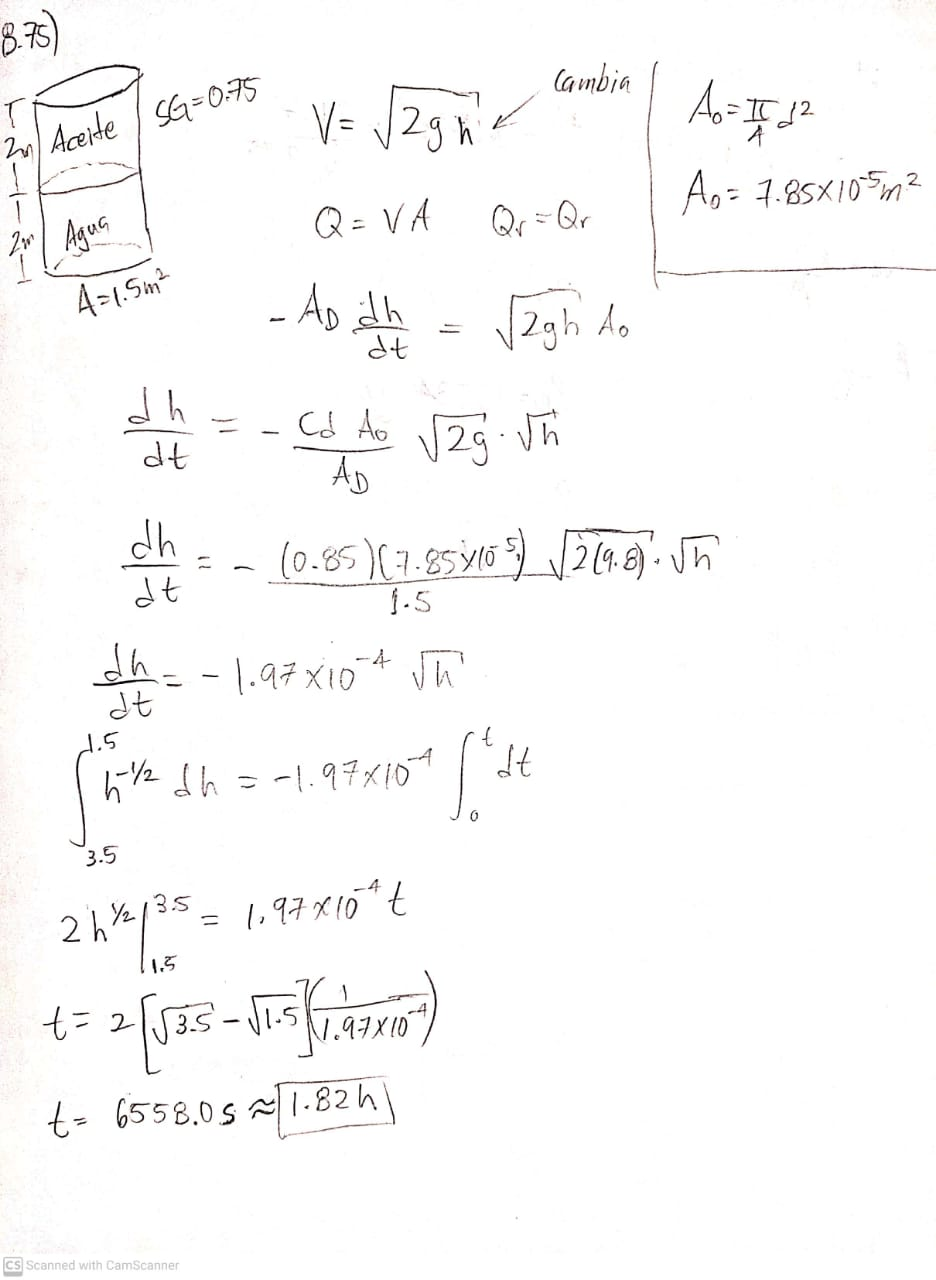 8.75)
2m Aceite SG=0.75
2m Agua
A=1.5m²
V= √2gh cambia
Q= VA Qr=Qr
A₀= π/4 d²
A₀= 7.85x10⁻⁵m²
- A_D dh/dt = √2gh A₀
dh/dt = - Cd A₀/A_D √2g · √h
dh/dt = - (0.85)(7.85x10⁻⁵)/1.5 √2(9.8) · √h
dh/dt = - 1.97x10⁻⁴ √h
∫_3.5^1.5 h^-1/2 dh = -1.97x10⁻⁴ ∫_0^t dt
2h^1/2 |_1.5^3.5 = 1,97x10⁻⁴ t
t= 2[√3.5 - √1.5](1/1.97x10⁻⁴)
t= 6558.0s ≈ 1.82h
CS Scanned with CamScanner